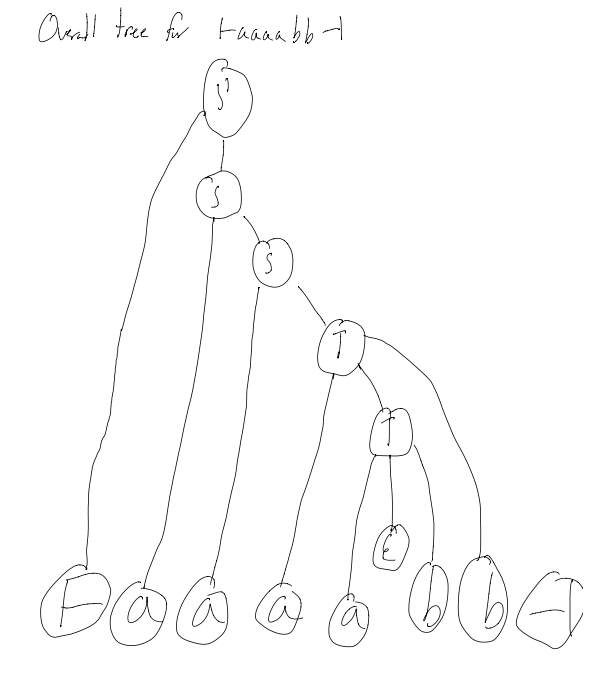 Overall tree for ⊢aaaabb⊣
S'
S
S
T
T
ε
⊢ a a a a b b ⊣